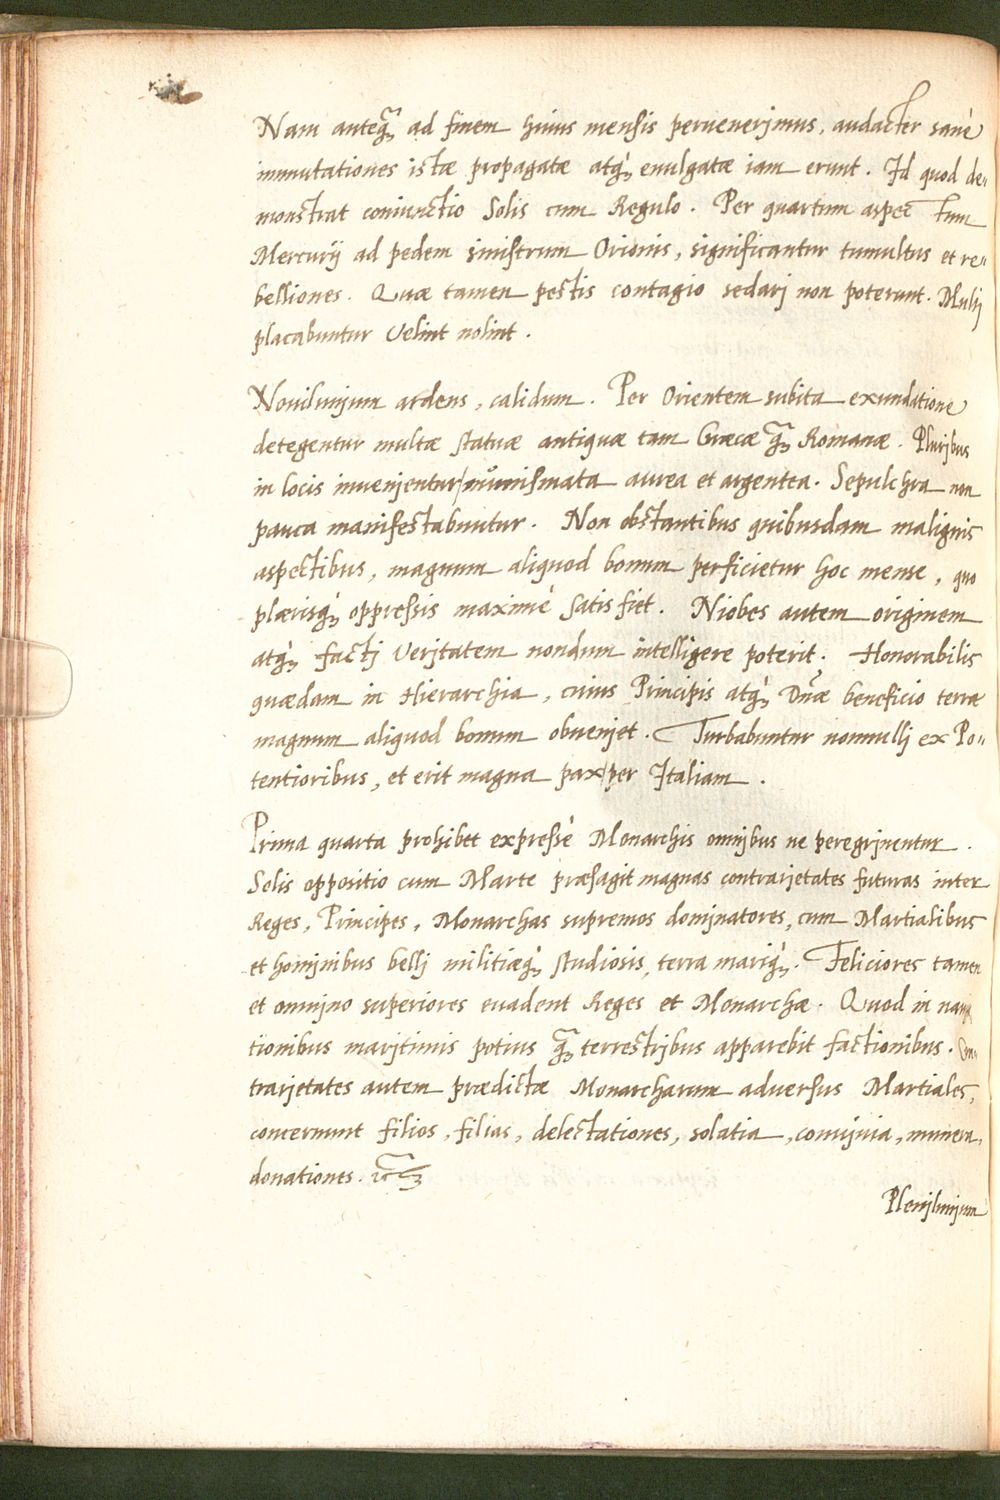 Nam anteq̃ꝫ ad finem huius mensis peruenerjmus, audacter sanè
immutationes istæ propagatæ atq́ꝫ euulgatæ iam erunt. Id quod de„
monstrat coniunctio Solis cum Regulo. Per quartum aspectum
Mercurij ad pedem sinistrum Orionis, significantur tumultus et re„
belliones. Quæ tamen pestis contagio sedarj non poterunt. Multj
placabuntur Velint nolint.
Nouilunjum ardens, calidum. Per Orientem subita exundatione
detegentur multæ statuæ antiquæ tam Græcæ q̃ꝫ Romanæ. Plurjbus
in locis inuenjentur numismata aurea et argentea. Sepulchra non
pauca manifestabuntur. Non obstantibus quibusdam malignis
aspectibus, magnum aliquod bonum perficietur hoc mense, quo
plærisq́ꝫ oppressis maximè satis fiet. Niobes autem originem
atq́ꝫ factj Verjtatem nondum intelligere poterit. Honorabilis
quædam in Hierarchia, cuius Principis atq́ꝫ Dñæ beneficio terræ
magnum aliquod bonum obuenjet. Turbabuntur nonnullj ex Po„
tentioribus, et erit magna pax per Italiam.
Prima quarta prohibet expressè Monarchis omnjbus ne peregrjnentur.
Solis oppositio cum Marte præsagit magnas contrarjetates futuras inter
Reges, Principes, Monarchas supremos dominatores, cum Martialibus
et homjnibus bellj militiæq́ꝫ studiosis, terra mariq́ꝫ. Feliciores tamen
et omnjno superiores euadent Reges et Monarchæ. Quod in nauiga
tionibus marjtimis potius q̃ꝫ terrestrjbus apparebit factionibus. Con„
trarjetates autem prædictæ Monarcharum aduersus Martiales,
concernunt filios, filias, delectationes, solatia, conujuia, munera,
donationes. etc̃
Plenjlunjum